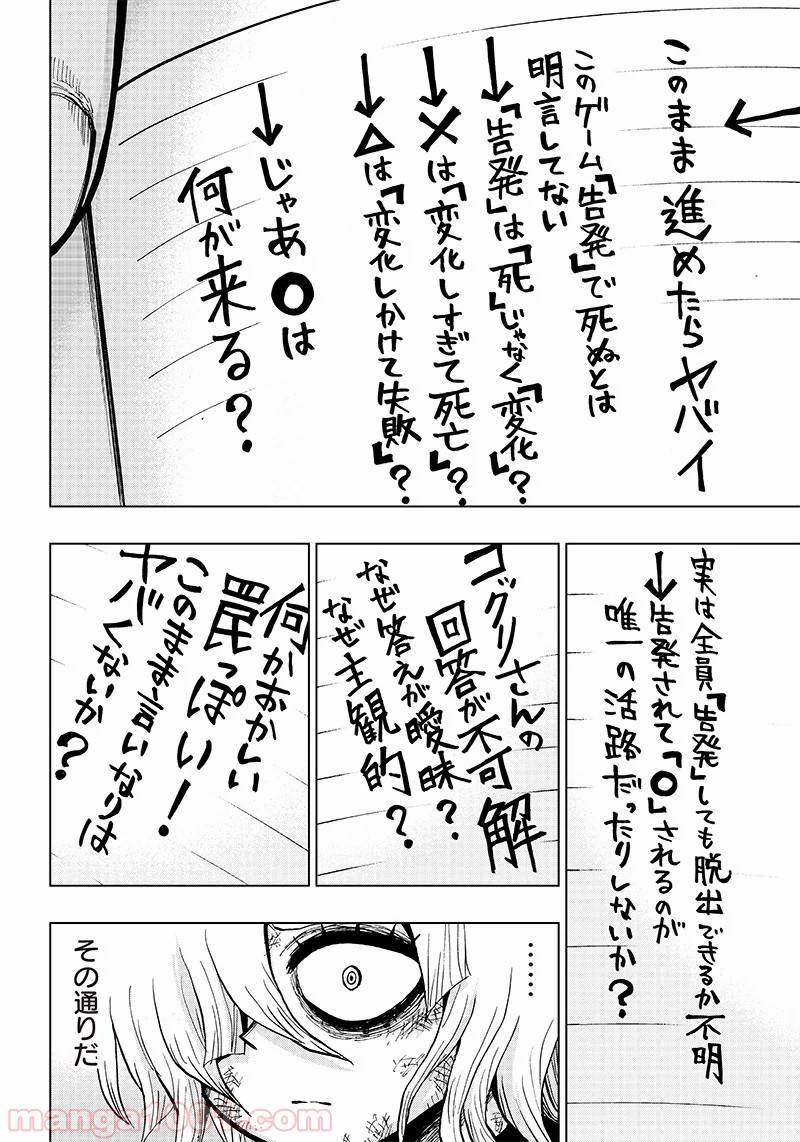 このまま進めたらヤバイ
このゲーム「告発」で死ぬとは
明言してない
↓「告発」は「死」じゃなく「変化」?
↓×は「変化しすぎて死亡」?
↓△は「変化しかけて失敗」?
↓じゃあ○は
何が来る?
実は全員「告発」しても脱出できるか不明
↓告発されて「○」されるのが
唯一の活路だったりしないか?
コックリさんの
回答が不可解
なぜ答えが曖昧?
なぜ主観的?
何かおかしい
罠っぽい!
このまま言いなりは
ヤバくないか?
……
その通りだ